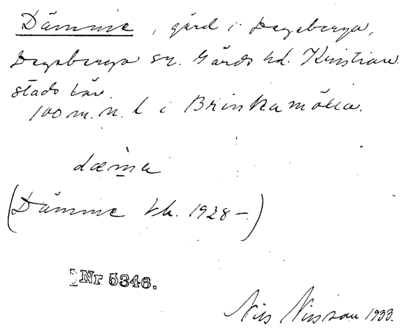 Dämme, gård i Degeberga,
Degeberga sn. Gärds hd. Kristian
stads län.
100 m. n. l. i Brinkamölla.
dæma
(Dämme kb. 1928–)
Nr 5346.
Nils Nilsson 1933.